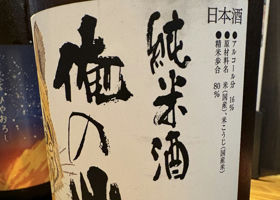 日本酒
●アルコール分 16%
●原材料名 米(国産)、米こうじ(国産米)
●精米歩合 80%
純米酒
俺の
やおろし